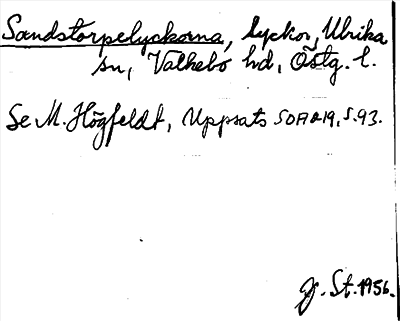 Sandstorpelyckorna, lyckor, Ulrika
sn, Valkebo hd, Östg. l.
Se M. Högfeldt, Uppsats SOFA 19, s. 93.
J. St. 1956.